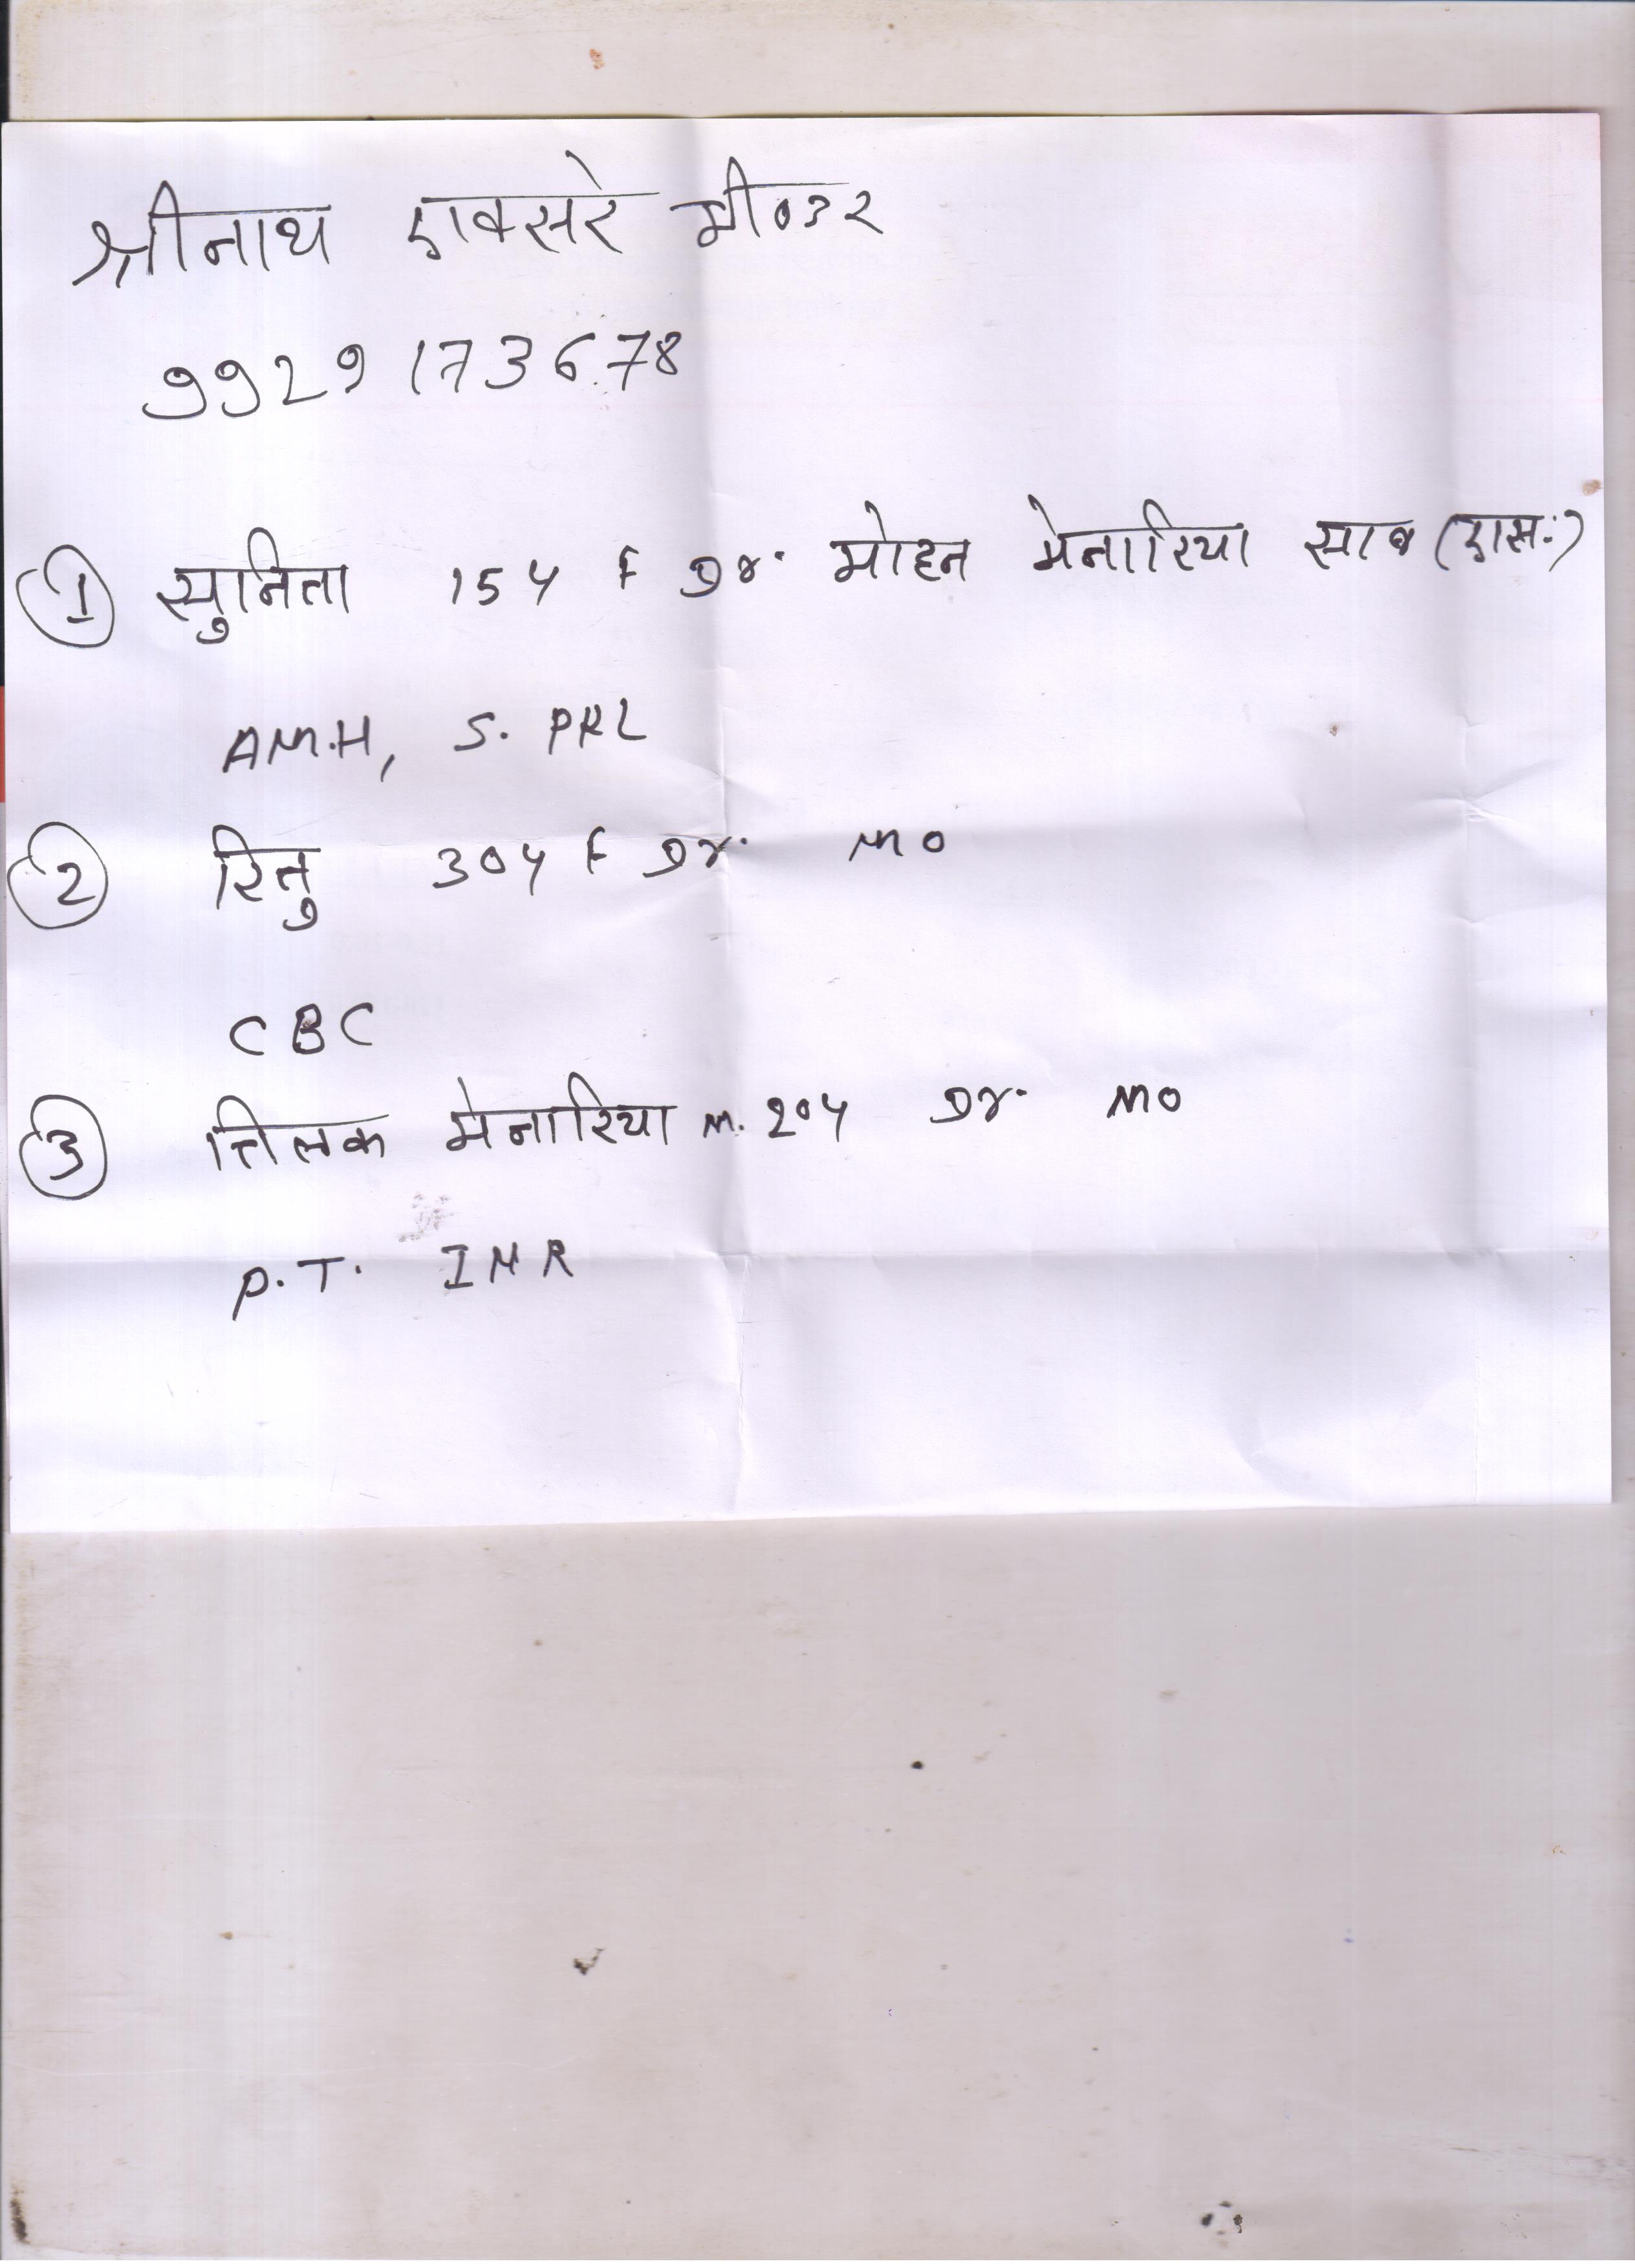 श्रीनाथ एक्सरे भीण्डर
9929173678
① सुनिता 15y F Dr. मोहन मेनारिया साब (एस.)
AM.H, S. PRL
② रितु 30y F Dr. MO
CBC
③ तिलक मेनारिया M. 20y Dr. MO
P.T. INR